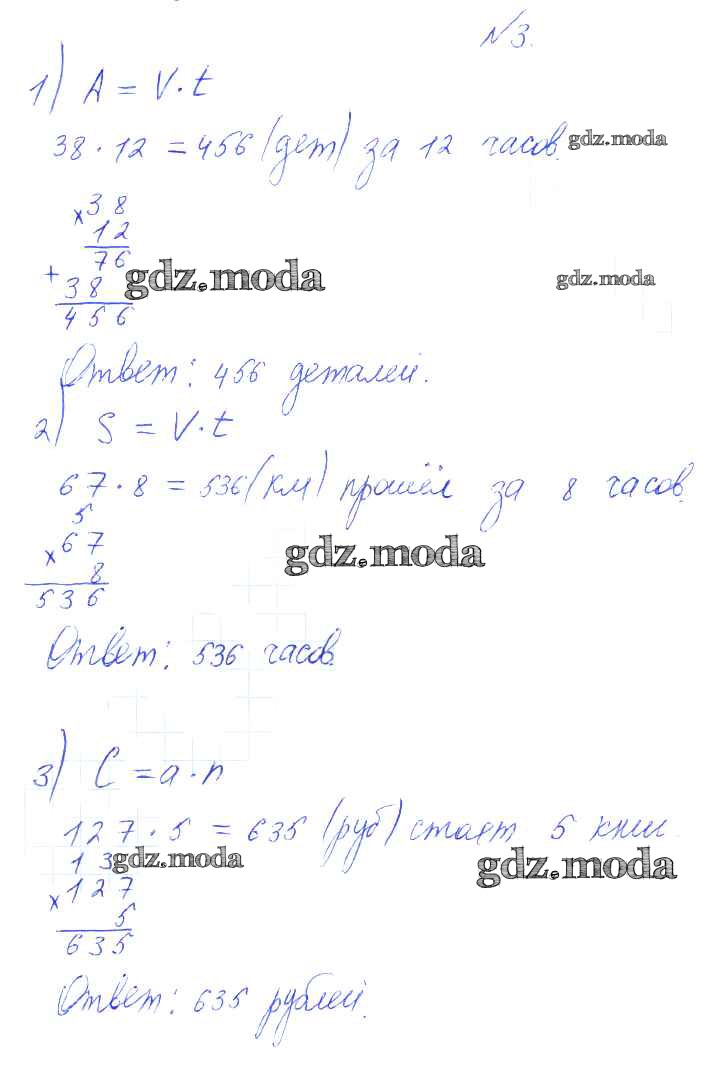 №3.
1) A = V·t
38·12 = 456 (дет) за 12 часов. gdz.moda
×38
12
76
+ gdz.moda gdz.moda
38
456
Ответ: 456 деталей.
2) S = V·t
67·8 = 536 (км) прошёл за 8 часов.
5
×67 gdz.moda
8
536
Ответ: 536 часов.
3) C = a·n
127·5 = 635 (руб) стоят 5 книг.
13 gdz.moda gdz.moda
×127
5
635
Ответ: 635 рублей.